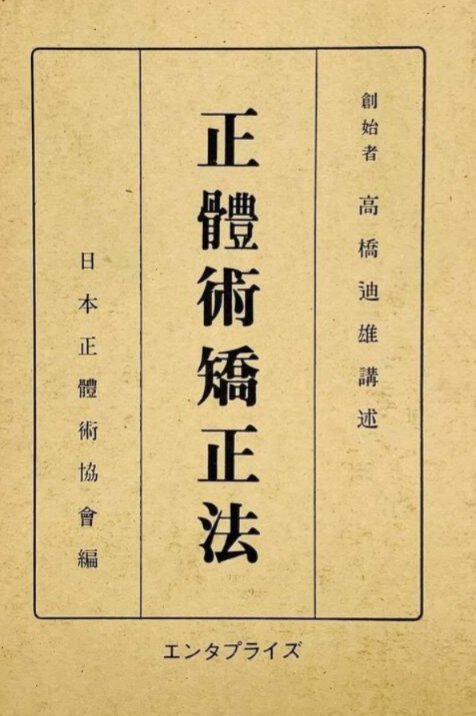 創始者 高橋迪雄講述
正體術矯正法
日本正體術協會編
エンタプライズ